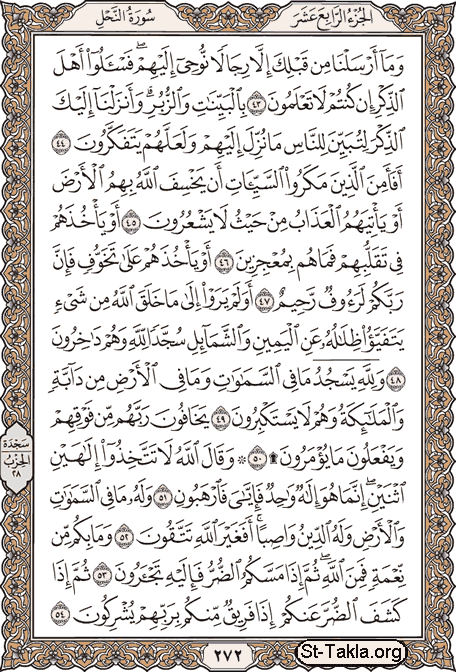 الجزء الرابع عشر
سورة النحل
وَمَآ أَرْسَلْنَا مِن قَبْلِكَ إِلَّا رِجَالًا نُّوحِىٓ إِلَيْهِمْ ۖ فَسْـَٔلُوٓا۟ أَهْلَ
ٱلذِّكْرِ إِن كُنتُمْ لَا تَعْلَمُونَ ٤٣ بِٱلْبَيِّنَـٰتِ وَٱلزُّبُرِ ۗ وَأَنزَلْنَآ إِلَيْكَ
ٱلذِّكْرَ لِتُبَيِّنَ لِلنَّاسِ مَا نُزِّلَ إِلَيْهِمْ وَلَعَلَّهُمْ يَتَفَكَّرُونَ ٤٤
أَفَأَمِنَ ٱلَّذِينَ مَكَرُوا۟ ٱلسَّيِّـَٔاتِ أَن يَخْسِفَ ٱللَّهُ بِهِمُ ٱلْأَرْضَ
أَوْ يَأْتِيَهُمُ ٱلْعَذَابُ مِنْ حَيْثُ لَا يَشْعُرُونَ ٤٥ أَوْ يَأْخُذَهُمْ
فِى تَقَلُّبِهِمْ فَمَا هُم بِمُعْجِزِينَ ٤٦ أَوْ يَأْخُذَهُمْ عَلَىٰ تَخَوُّفٍ فَإِنَّ
رَبَّكُمْ لَرَءُوفٌ رَّحِيمٌ ٤٧ أَوَلَمْ يَرَوْا۟ إِلَىٰ مَا خَلَقَ ٱللَّهُ مِن شَىْءٍ
يَتَفَيَّؤُا۟ ظِلَـٰلُهُۥ عَنِ ٱلْيَمِينِ وَٱلشَّمَآئِلِ سُجَّدًا لِّلَّهِ وَهُمْ دَٰخِرُونَ
٤٨ وَلِلَّهِ يَسْجُدُ مَا فِى ٱلسَّمَـٰوَٰتِ وَمَا فِى ٱلْأَرْضِ مِن دَآبَّةٍ
وَٱلْمَلَـٰٓئِكَةُ وَهُمْ لَا يَسْتَكْبِرُونَ ٤٩ يَخَافُونَ رَبَّهُم مِّن فَوْقِهِمْ
وَيَفْعَلُونَ مَا يُؤْمَرُونَ ۩ ٥٠ ۞ وَقَالَ ٱللَّهُ لَا تَتَّخِذُوٓا۟ إِلَـٰهَيْنِ
ٱثْنَيْنِ ۖ إِنَّمَا هُوَ إِلَـٰهٌ وَٰحِدٌ ۖ فَإِيَّـٰىَ فَٱرْهَبُونِ ٥١ وَلَهُۥ مَا فِى ٱلسَّمَـٰوَٰتِ
وَٱلْأَرْضِ وَلَهُ ٱلدِّينُ وَاصِبًا ۚ أَفَغَيْرَ ٱللَّهِ تَتَّقُونَ ٥٢ وَمَا بِكُم مِّن
نِّعْمَةٍ فَمِنَ ٱللَّهِ ۖ ثُمَّ إِذَا مَسَّكُمُ ٱلضُّرُّ فَإِلَيْهِ تَجْـَٔرُونَ ٥٣ ثُمَّ إِذَا
كَشَفَ ٱلضُّرَّ عَنكُمْ إِذَا فَرِيقٌ مِّنكُم بِرَبِّهِمْ يُشْرِكُونَ ٥٤
سجدة
الحزب
٢٨
٢٧٢
St-Takla.org